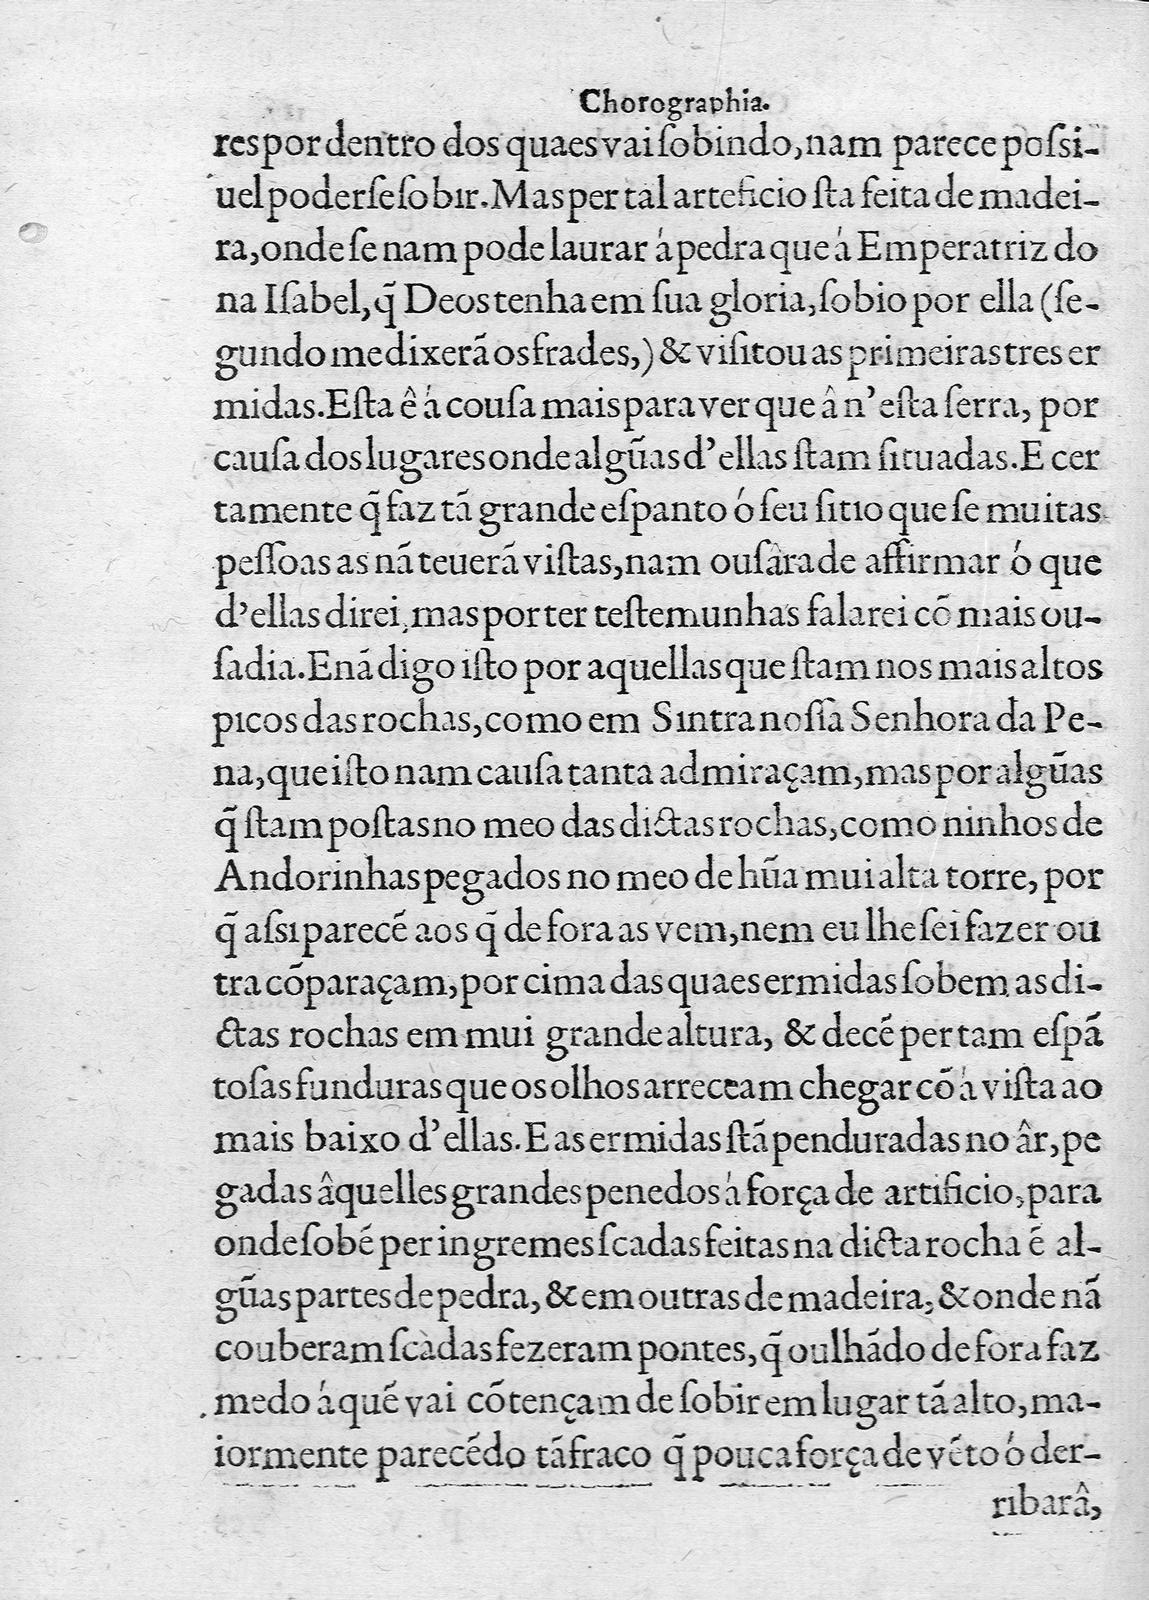 Chorographia.
res por dentro dos quaes vai ſobindo, nam parece poſsi-
uel poderſe ſobir. Mas per tal arteficio ſta feita de madei-
ra, onde ſe nam pode laurar á pedra que á Emperatriz do
na Iſabel, q̃ Deos tenha em ſua gloria, ſobio por ella (ſe-
gundo me dixerã os frades,) & viſitou as primeiras tres er
midas. Eſta ê á couſa mais para ver que â n'eſta ſerra, por
cauſa dos lugares onde algũas d'ellas ſtam ſituadas. E cer
tamente q̃ faz tã grande eſpanto ó ſeu ſitio que ſe muitas
peſſoas as nã teuerã viſtas, nam ouſâra de affirmar ó que
d'ellas direi, mas por ter teſtemunhas falarei cõ mais ou-
ſadia. E nã digo iſto por aquellas que ſtam nos mais altos
picos das rochas, como em Sintra noſſa Senhora da Pe-
na, que iſto nam cauſa tanta admiraçam, mas por algũas
q̃ ſtam poſtas no meo das dictas rochas, como ninhos de
Andorinhas pegados no meo de hũa mui alta torre, por
q̃ aſsi parecẽ aos q̃ de fora as vem, nem eu lhe ſei fazer ou
tra cõparaçam, por cima das quaes ermidas ſobem as di-
ctas rochas em mui grande altura, & decẽ per tam eſpã
toſas funduras que os olhos arreceam chegar cõ á viſta ao
mais baixo d'ellas. E as ermidas ſtã penduradas no âr, pe
gadas âquelles grandes penedos á força de artificio, para
onde ſobẽ per ingremes ſcadas feitas na dicta rocha ẽ al-
gũas partes de pedra, & em outras de madeira, & onde nã
couberam ſcàdas fezeram pontes, q̃ oulhãdo de fora faz
medo á quẽ vai cõ tençam de ſobir em lugar tã alto, ma-
iormente parecẽdo tã fraco q̃ pouca força de vẽto ó der-
ribarâ,